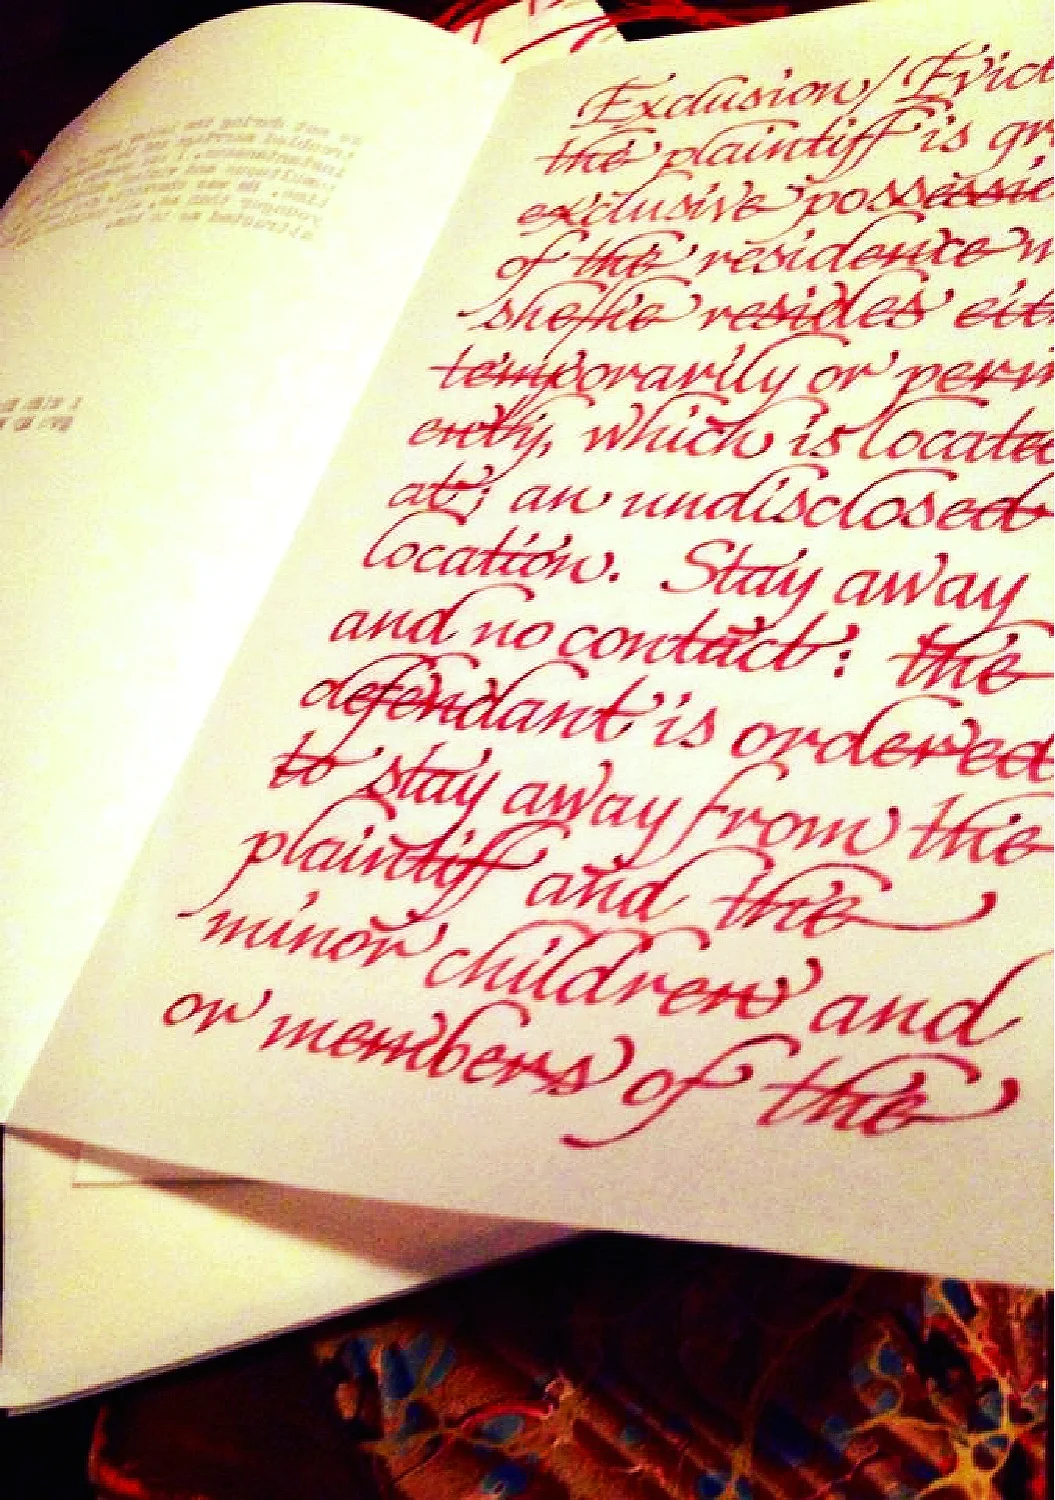 Exclusion/Evict
the plaintiff is gr
exclusive possessio
of the residence w
she/he resides eit
temporarily or perm
ently, which is locate
at; an undisclosed
location. Stay away
and no contact: the
defendant is ordered
to stay away from the
plaintiff and the
minor children and
or members of the